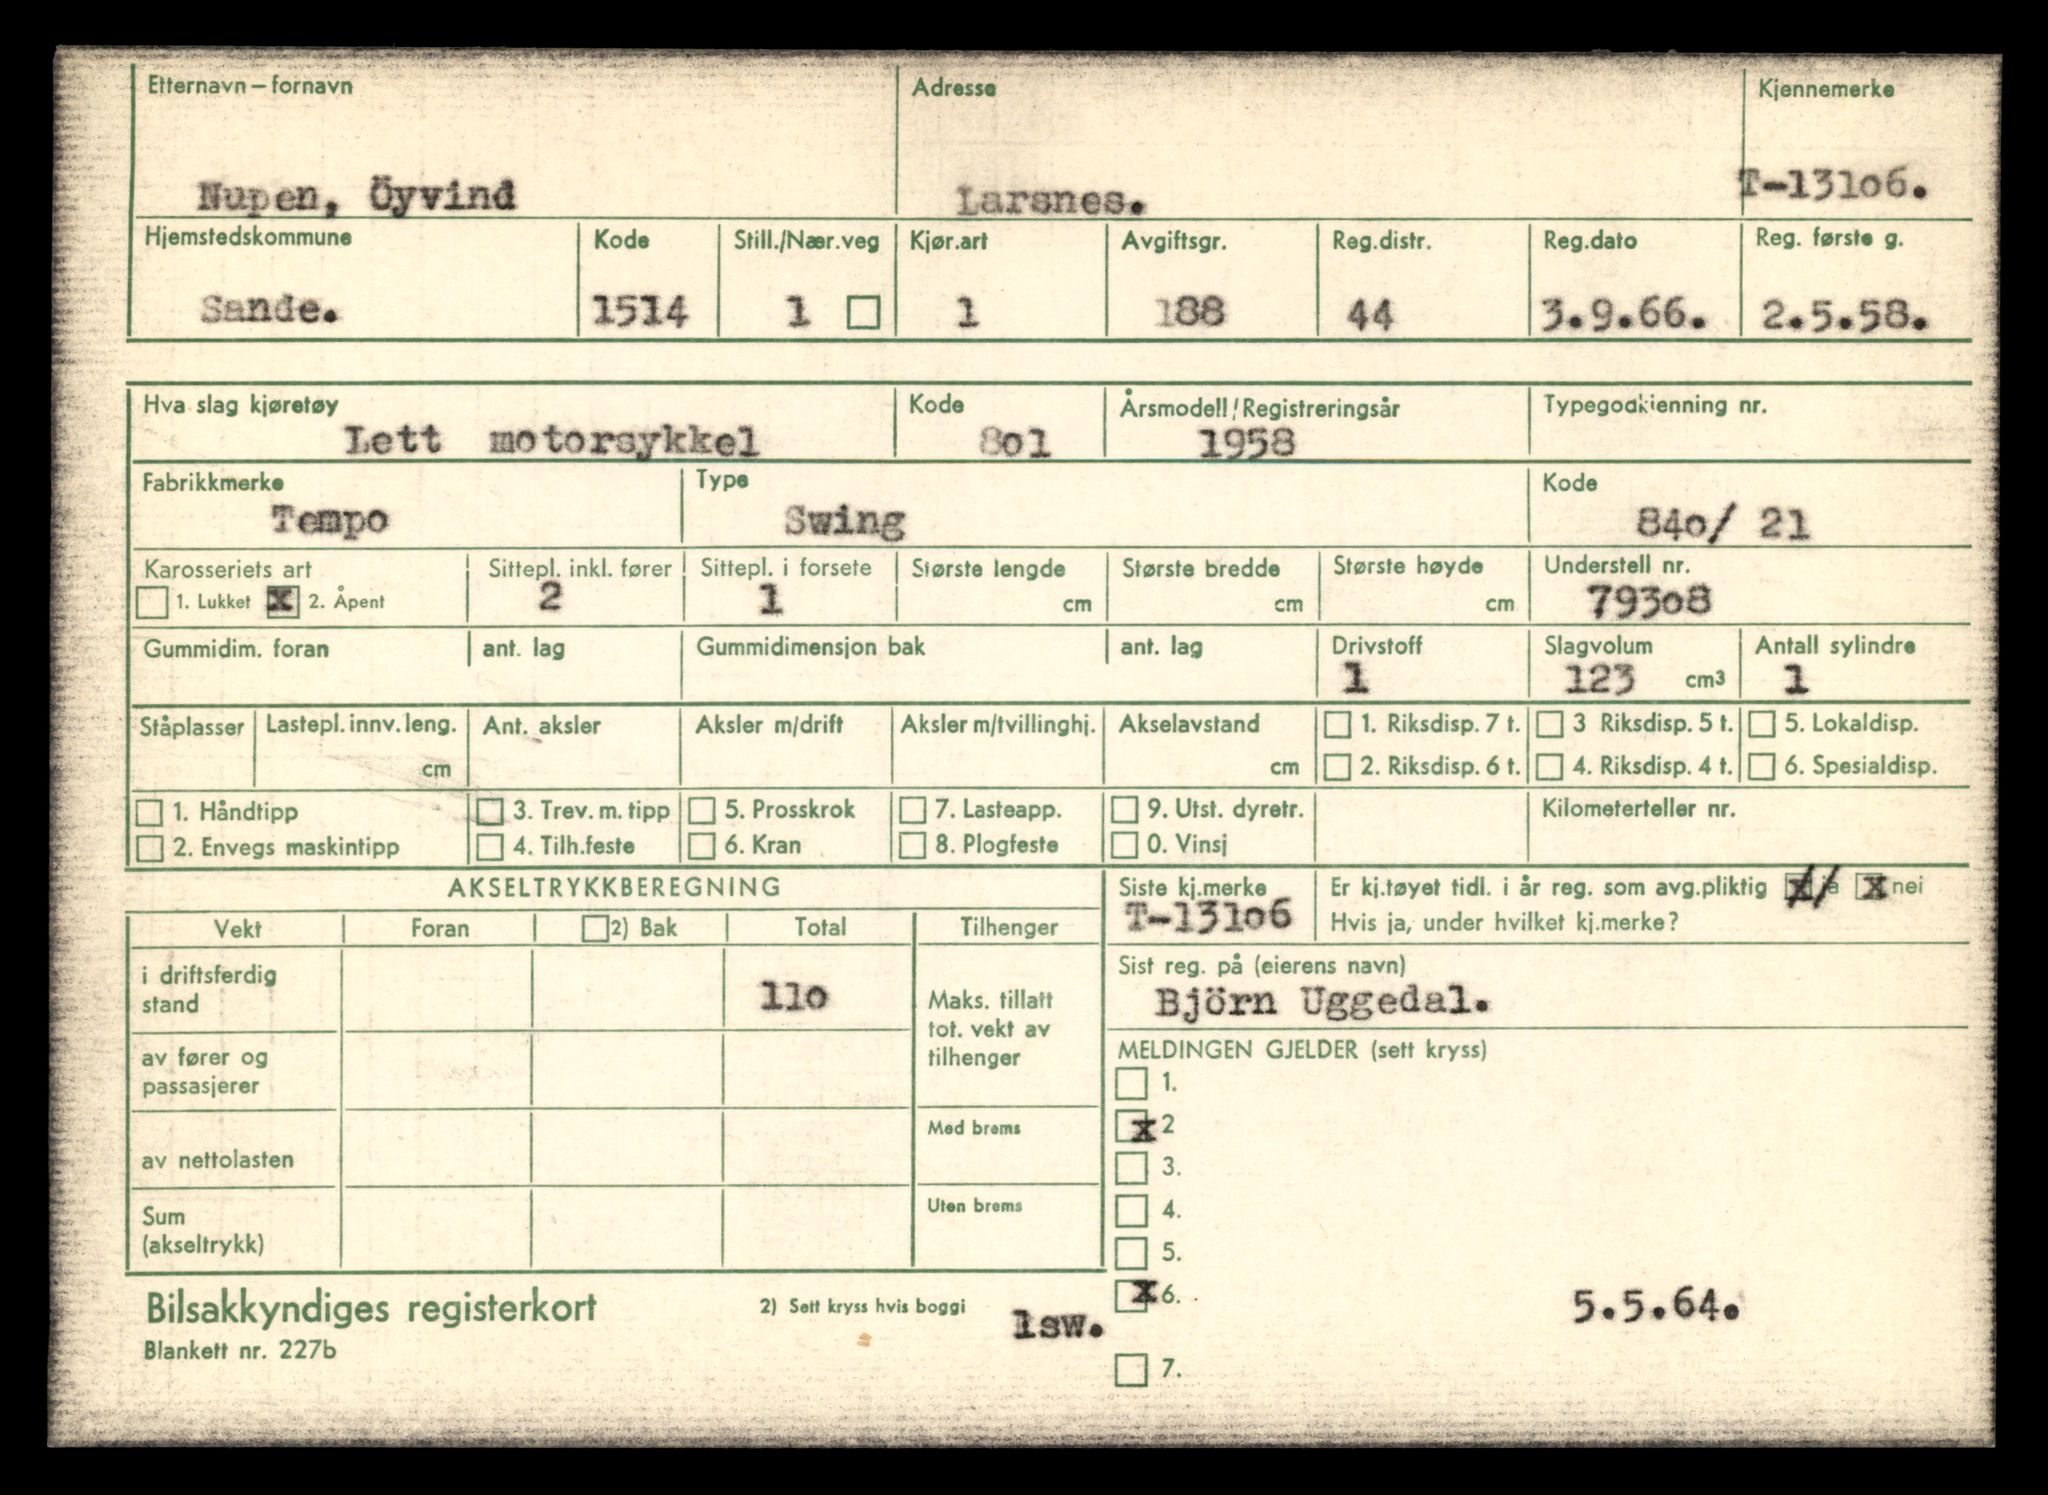 Etternavn – fornavn Adresse Kjennemerke
Nupen, Öyvind Larsnes. T-13106.
Hjemstedskommune Kode Still./Nær.veg Kjør.art Avgiftsgr. Reg.distr. Reg.dato Reg. første g.
Sande. 1514 1 1 188 44 3.9.66. 2.5.58.
Hva slag kjøretøy Kode Årsmodell/Registreringsår Typegodkjenning nr.
Lett motorsykkel 801 1958
Fabrikkmerke Type Kode
Tempo Swing 840/ 21
Karosseriets art Sittepl. inkl. fører Sittepl. i forsete Største lengde Største bredde Største høyde Understell nr.
1. Lukket x 2. Åpent 2 1 cm cm cm 79308
Gummidim. foran ant. lag Gummidimensjon bak ant. lag Drivstoff Slagvolum Antall sylindre
1 123 cm3 1
Ståplasser Lastepl. innv. leng. Ant. aksler Aksler m/drift Aksler m/tvillinghj. Akselavstand 1. Riksdisp. 7 t. 3 Riksdisp. 5 t. 5. Lokaldisp.
cm cm 2. Riksdisp. 6 t. 4. Riksdisp. 4 t. 6. Spesialdisp.
1. Håndtipp 3. Trev. m. tipp 5. Prosskrok 7. Lasteapp. 9. Utst. dyretr. Kilometerteller nr.
2. Envegs maskintipp 4. Tilh.feste 6. Kran 8. Plogfeste 0. Vinsj
AKSELTRYKKBEREGNING Siste kj.merke Er kj.tøyet tidl. i år reg. som avg.pliktig x ja x nei
T-13106 Hvis ja, under hvilket kj.merke?
Vekt Foran 2) Bak Total Tilhenger
Sist reg. på (eierens navn)
i driftsferdig
stand 110 Maks. tillatt Björn Uggedal.
tot. vekt av
av fører og tilhenger MELDINGEN GJELDER (sett kryss)
passasjerer 1.
Med brems x 2
av nettolasten 3.
Uten brems 4.
Sum
(akseltrykk) 5.
Bilsakkyndiges registerkort 2) Sett kryss hvis boggi lsw. x 6. 5.5.64.
Blankett nr. 227b
7.